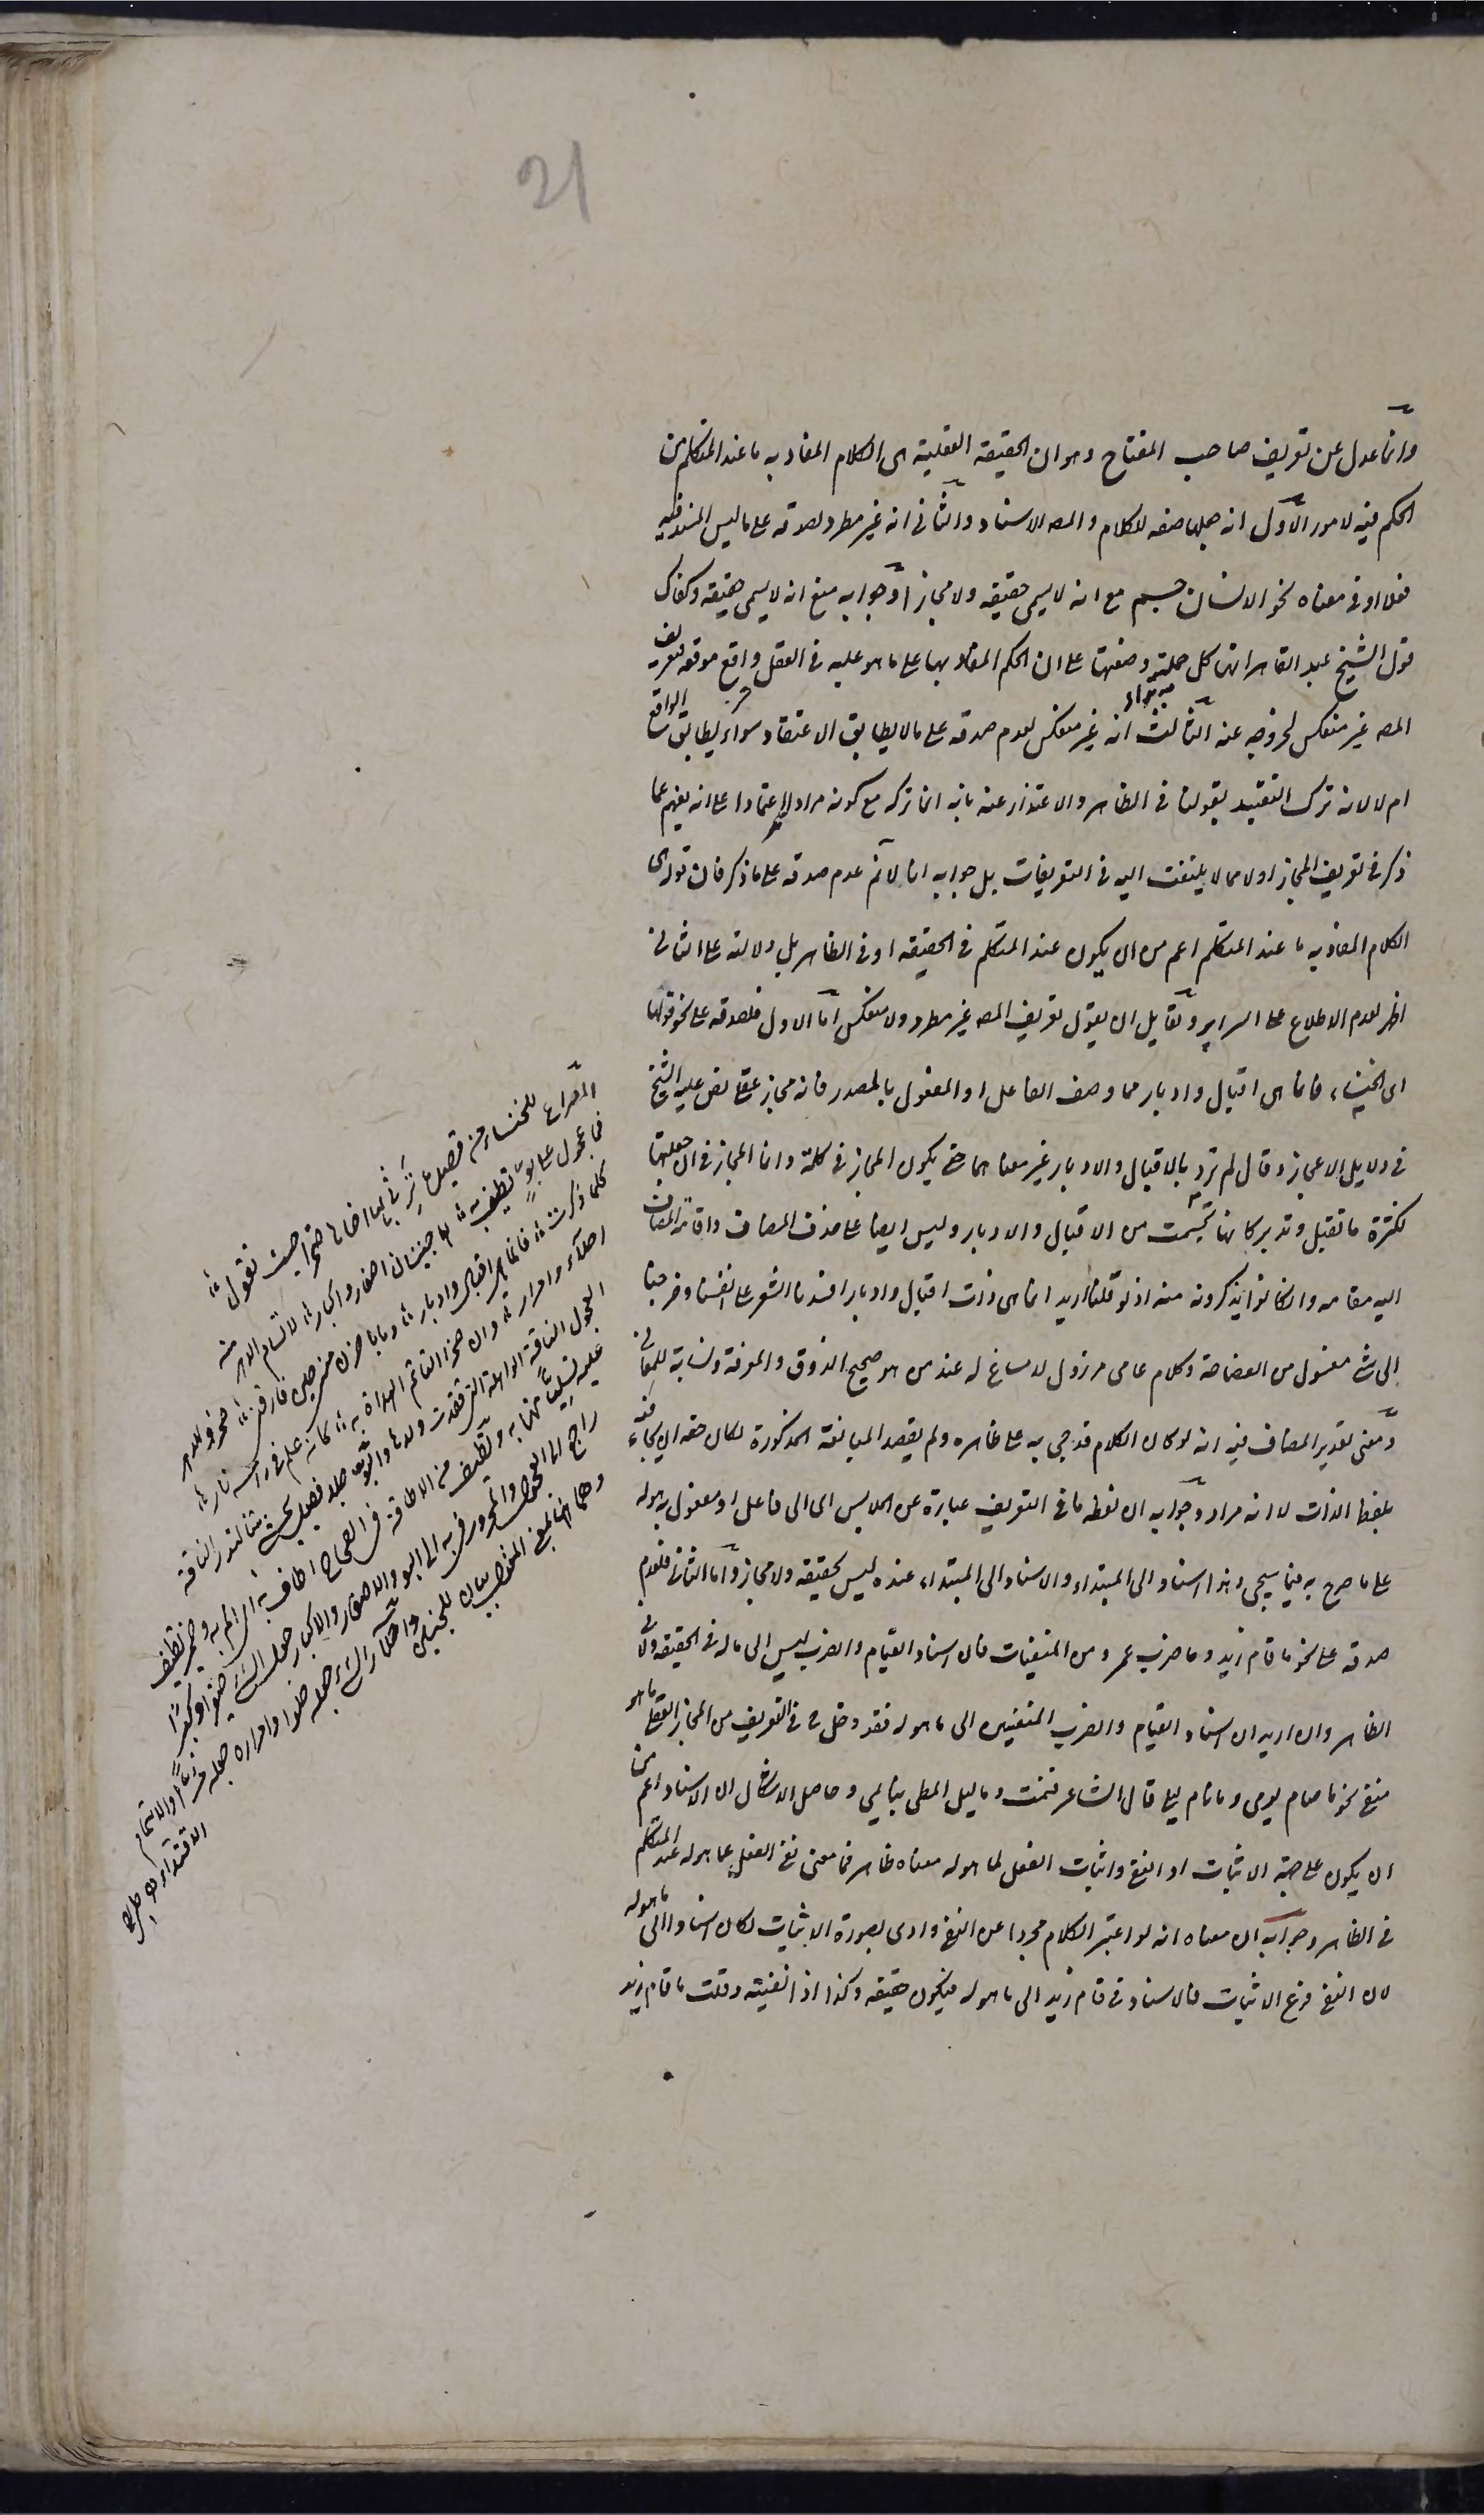 21
وانما عدل عن تعريف صاحب المفتاح وهو ان الحقيقة العقلية هى الكلام المفاد به ما عند المتكلم من
الحكم فيه لامور الاول انه جعلها صفه للكلام والمص الاسناد والثانى انه غير مطرد لصدقه على ما ليس المسند فيه
فعلا او فى معناه نحو الانسان جسم مع انه لا يسمى حقيقه ولا مجازا وجوابه منع انه لا يسمى حقيقه وكفاك
قول الشيخ عبد القاهر انها كل جملة وضعتها على ان الحكم المفاد بها على ما هو عليه فى العقل واقع موقعه فتعريف
المص غير منعكس لخروجه عنه الثالث انه غير منعكس لعدم صدقه على ما لا يطابق الاعتقاد سواء يطابق الواقع
ام لا لانه ترك التقييد بقولنا فى الظاهر والاعتذار عنه بانه انما تركه مع كونه مرادا اعتمادا على انه يفهم عما
ذكر فى تعريف المجاز اولا مما لا يلتفت اليه فى التعريفات بل جوابه انا لا نم عدم صدقه على ما ذكر فان قوله هى
الكلام المفاد به ما عند المتكلم اعم من ان يكون عند المتكلم فى الحقيقه او فى الظاهر بل دلالته على الثانى
اظهر لعدم الاطلاع على السراير ولقايل ان يقول تعريف المص غير مطرد ولا منعكس اما الاول فلصدقه على نحو قولها
اى الخنساء فانما هى اقبال وادبار مما وصف الفاعل او المفعول بالمصدر فانه مجاز عقلى نص عليه الشيخ
فى دلايل الاعجاز وقال لم ترد بالاقبال والادبار غير معناهما حتى يكون المجاز فى كلمة وانما المجاز فى ان جعلتها
لكثرة ما تقبل وتدبر كانها تجسمت من الاقبال والادبار وليس ايضا على حذف المضاف واقامة المضاف
اليه مقامه وان كانوا يذكرونه منه اذ لو قلنا اريد انما هى ذات اقبال وادبار افسدنا الشعر على انفسنا وخرجنا
الى شئ مغسول من الفصاحة وكلام عامى مرذول لا مساغ له عند من هو صحيح الذوق والمعرفة ونسابة للمعانى
ومعنى تقدير المضاف فيه انه لو كان الكلام قد جى به على ظاهره ولم يقصد المبالغة المذكورة لكان حقه ان يجاء فيه
بلفظ الذات لا انه مراد وجوابه ان لفظه ما فى التعريف عبارة عن الملابس اى الى فاعل او مفعول به هو له
على ما صرح به فيما سيجى وهذا اسناد الى المبتداء والاسناد الى المبتداء عنده ليس بحقيقه ولا مجاز واما الثانى فلعدم
صدقه على نحو ما قام زيد وما ضرب عمرو من المنفيات فان اسناد القيام والضرب ليس الى ما له فى الحقيقه ولا فى
الظاهر وان اريد ان اسناد القيام والضرب المنفيين الى ما هو له فقد دخل ح فى التعريف من المجاز العقلى ما هو
منفى نحو ما صام يومى وما نام ليلى قال الشاعر فنمت وما ليل المطى بنائم وحاصل الاشكال ان الاسناد اعم من
ان يكون على جهة الاثبات او النفى واثبات الفعل لما هو له معناه ظاهر فما معنى نفى الفعل عما هو له عند المتكلم
فى الظاهر وجوابه ان معناه انه لو اعتبر الكلام مجردا عن النفى وادى بصورة الاثبات لكان اسنادا الى ما هو له
لان النفى فرع الاثبات فالاسناد فى قام زيد الى ما هو له فيكون حقيقه وكذا اذا نفيته وقلت ما قام زيد
المصراع للخنساء من قصيدة ترثى بها اخاها صخرا حيث تقول
فما عجول على بو تطيف به لها حنينان اصغار واكبار لا تسام الدهر منه
كلما ذكرت فانما هى اقبال وادبار يوما باحزن منى حين فارقنى صخر وللدهر
احلاء وامرار وان صخرا لتاتم الهداة به كانه علم فى راسه نار
العجول الناقة الوالهة التى فقدت ولدها والبو جلد فصيل يحشى تبنا لتدر الناقه